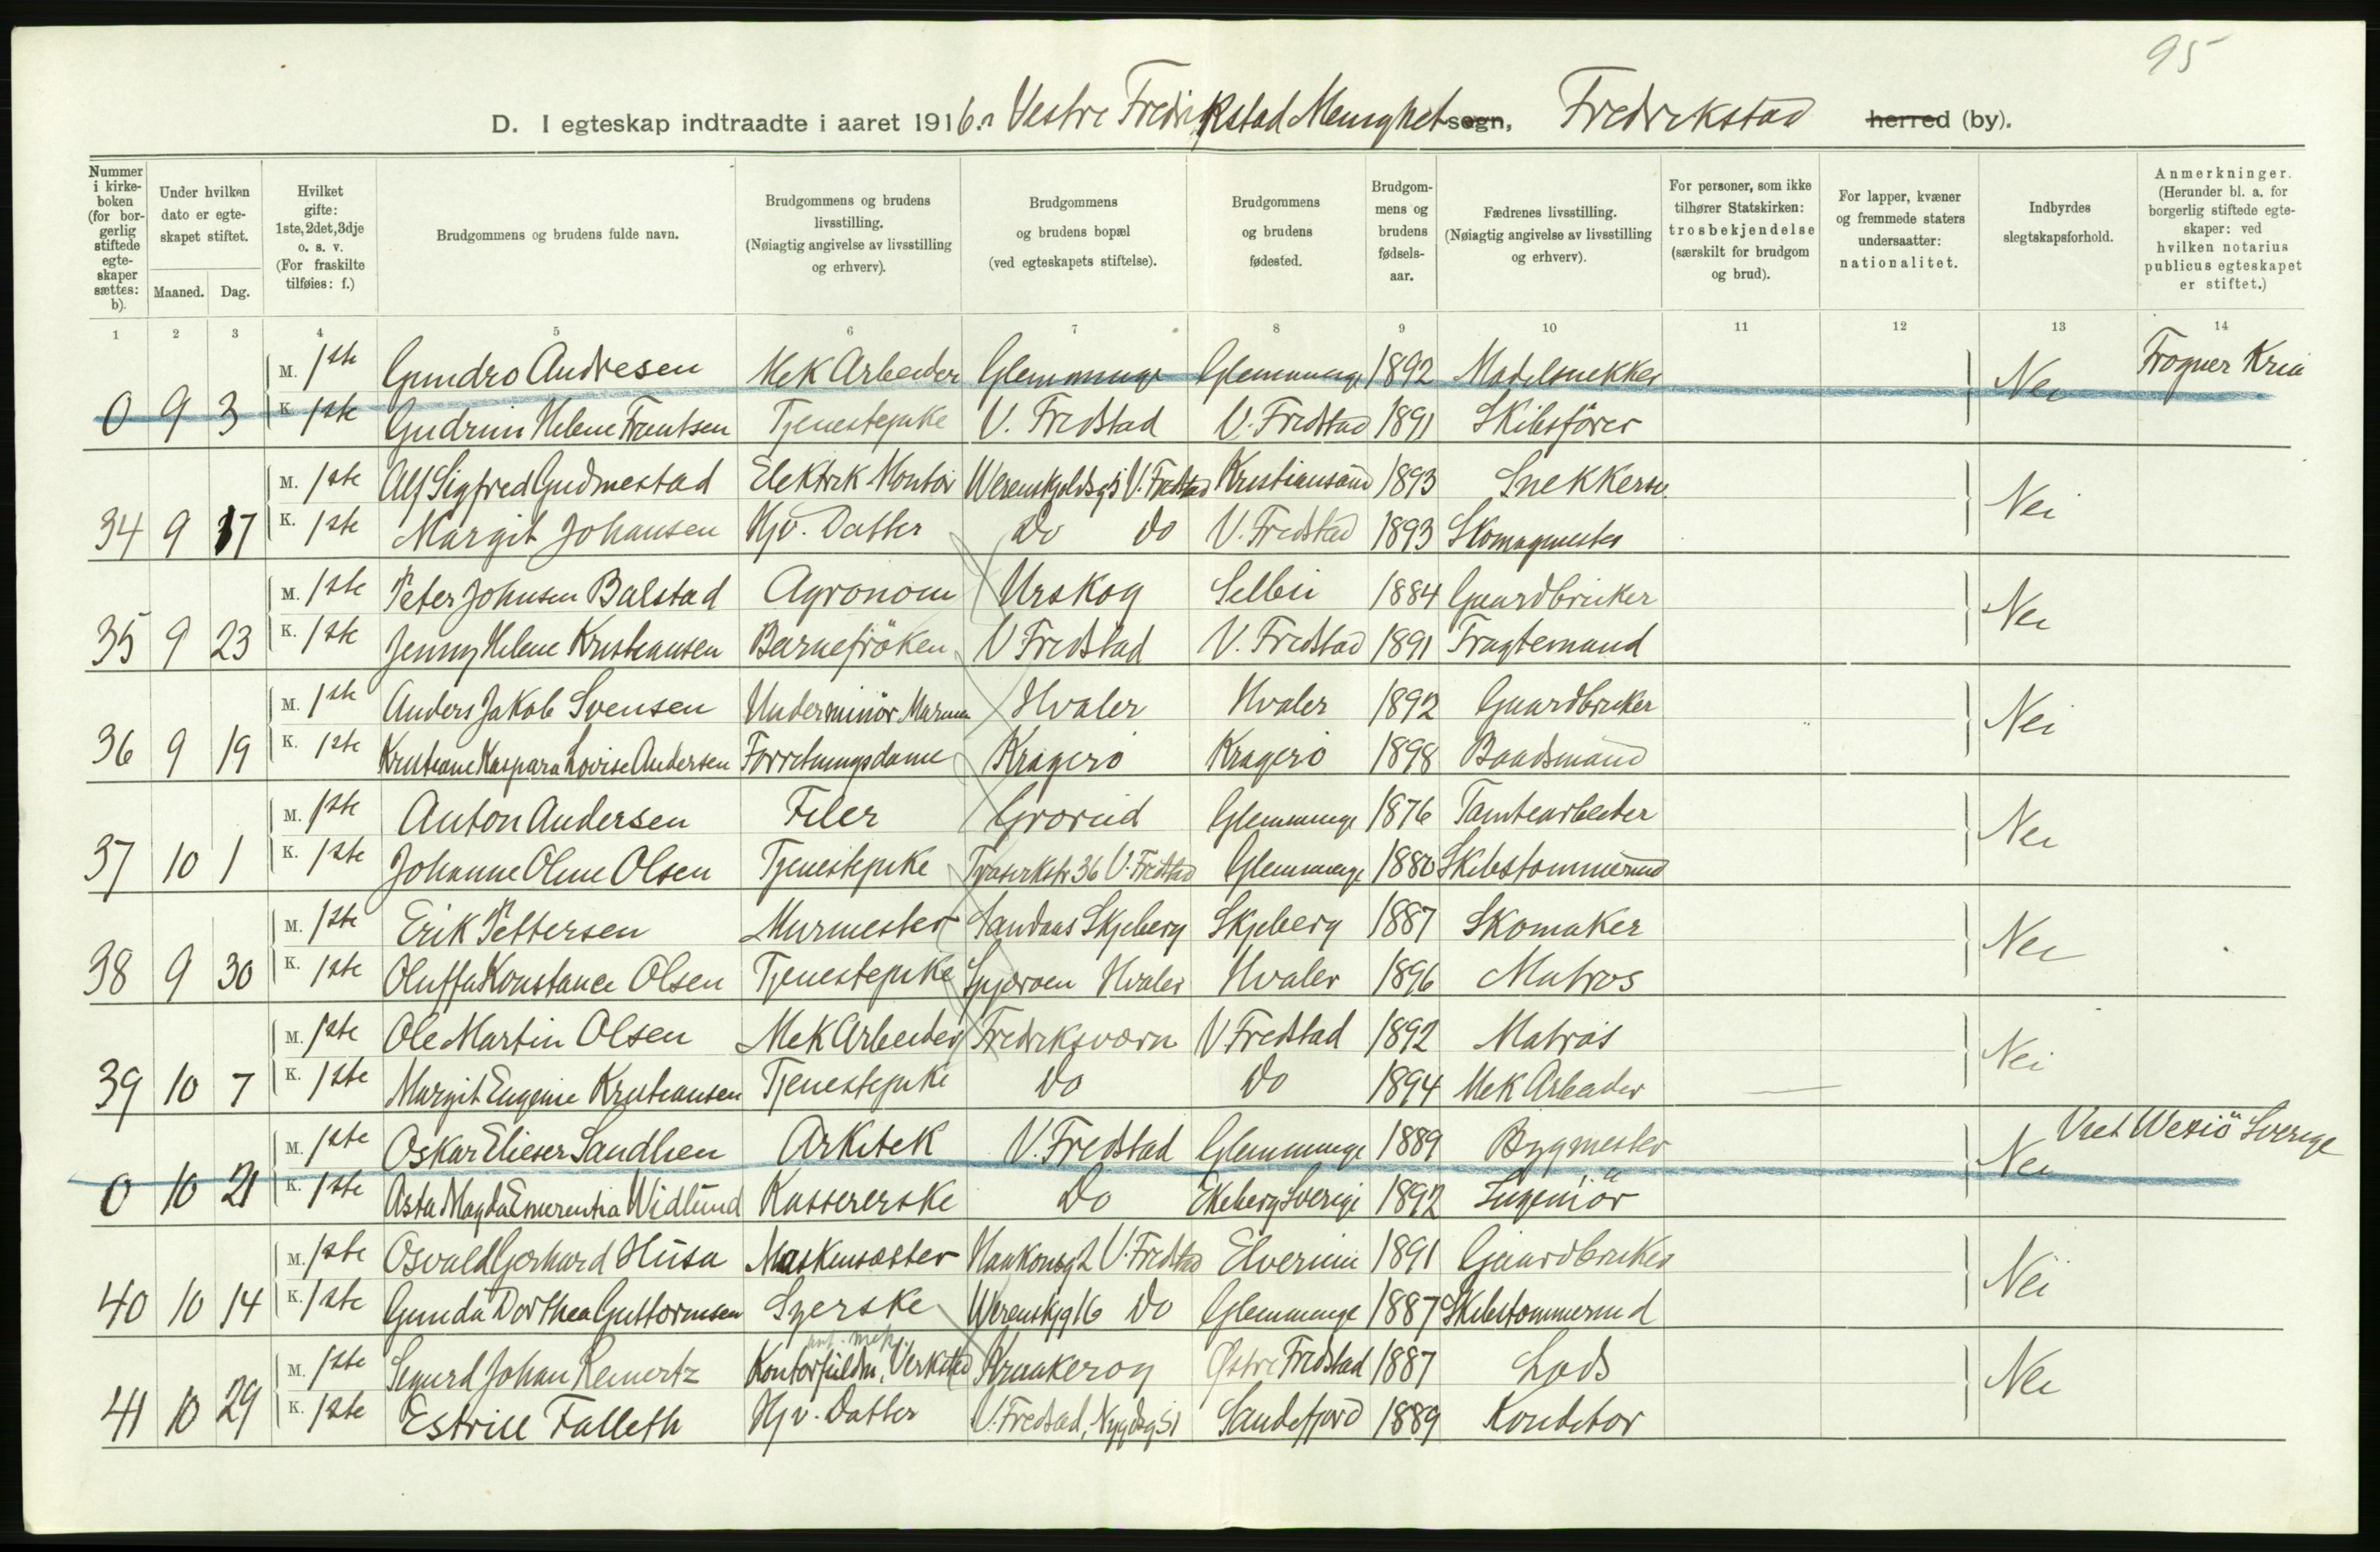 95
D. I egteskap indtraadte i aaret 1916. i Vestre Fredrikstad Menighet sogn, Fredrikstad herred (by).
Nummer i kirke-boken (for bor-gerlig stiftede egte-skaper sættes: b).
Under hvilken dato er egte-skapet stiftet.
Maaned. Dag.
Hvilket gifte: 1ste, 2det, 3dje o. s. v. (For fraskilte tilføies: f.)
Brudgommens og brudens fulde navn.
Brudgommens og brudens livsstilling. (Nøiagtig angivelse av livsstilling og erhverv).
Brudgommens og brudens bopæl (ved egteskapets stiftelse).
Brudgommens og brudens fødested.
Brudgom-mens og brudens fødsels-aar.
Fædrenes livsstilling. (Nøiagtig angivelse av livsstilling og erhverv).
For personer, som ikke tilhører Statskirken: trosbekjendelse (særskilt for brudgom og brud).
For lapper, kvæner og fremmede staters undersaatter: nationalitet.
Indbyrdes slegtskapsforhold.
Anmerkninger. (Herunder bl. a. for borgerlig stiftede egte-skaper: ved hvilken notarius publicus egteskapet er stiftet.)
1 2 3 4 5 6 7 8 9 10 11 12 13 14
M. 1ste Gundro Andresen Mek Arbeider Glemminge Glemminge 1892 Modelsnekker Nei Frogner Kria
0 9 3 K. 1ste Gudrun Helene Frantsen Tjenestepike V. Fredstad V. Fredstad 1891 Skibsfører
M. 1ste Alf Sigfred Gudmestad Elektrk Montør V. Fredstad Kristiansand 1893 Snekkersv. Nei
34 9 17 K. 1ste Margit Johansen Hjv. Datter Do Do V. Fredstad 1893 Skomagmester
M. 1ste Peter Johnsen Balstad Agronom Urskog Selbu 1884 Gaardbruker Nei
35 9 23 K. 1ste Jenny Helene Kristiansen Barnefröken V Fredstad V. Fredstad 1891 Fragtemand
M. 1ste Anders Jakob Svensen Underminör Marinen Hvaler Hvaler 1892 Gaardbruker Nei
36 9 19 K. 1ste Kristiane Kaspara Lovise Andersen Forretningsdame Kragerö Kragerö 1898 Baadsmand
M. 1ste Anton Andersen Filer Grorud Glemminge 1876 Tomtearbeider Nei
37 10 1 K. 1ste Johanne Oline Olsen Tjenestepike 36 V. Fredstad Glemminge 1880 Skibstömmermd
M. 1ste Erik Pettersen Murmester Sandaas Skjeberg Skjeberg 1887 Skomaker Nei
38 9 30 K. 1ste Oluffa Konstance Olsen Tjenestepike Spjæröen Hvaler Hvaler 1896 Matros
M. 1ste Ole Martin Olsen Mek Arbeider Fredriksværn V Fredstad 1892 Matros Nei
39 10 7 K. 1ste Margit Eugenie Kristiansen Tjenestepike Do Do 1894 Mek Arbeider
M. 1ste Oskar Elieser Sandlien Arkitek V. Fredstad Glemminge 1889 Bygmester Nei Viet Wexiö Sverige
0 10 21 K. 1ste Asta Magda Emerentia Widlund Kassererske Do Ekeberg Sverige 1892 Ingeniör
M. 1ste Osvald Gerhard Husa Maskensætter Haakonsg 2 V. Fredstad Elverum 1891 Gaardbruker Nei
40 10 14 K. 1ste Gunda Dorthea Guttormsen Syerske Werenskjg 16 Do Glemminge 1887 Skibstömmermd
M. 1ste Sigurd Johan Reinertz Kontorfuldm. mek. Verksted Kraakeröy Østre Fredstad 1887 Lods Nei
41 10 29 K. 1ste Estrill Falleth Hjv. Datter V. Fredstad, Nygdsg 51 Sandefjord 1889 Konditor